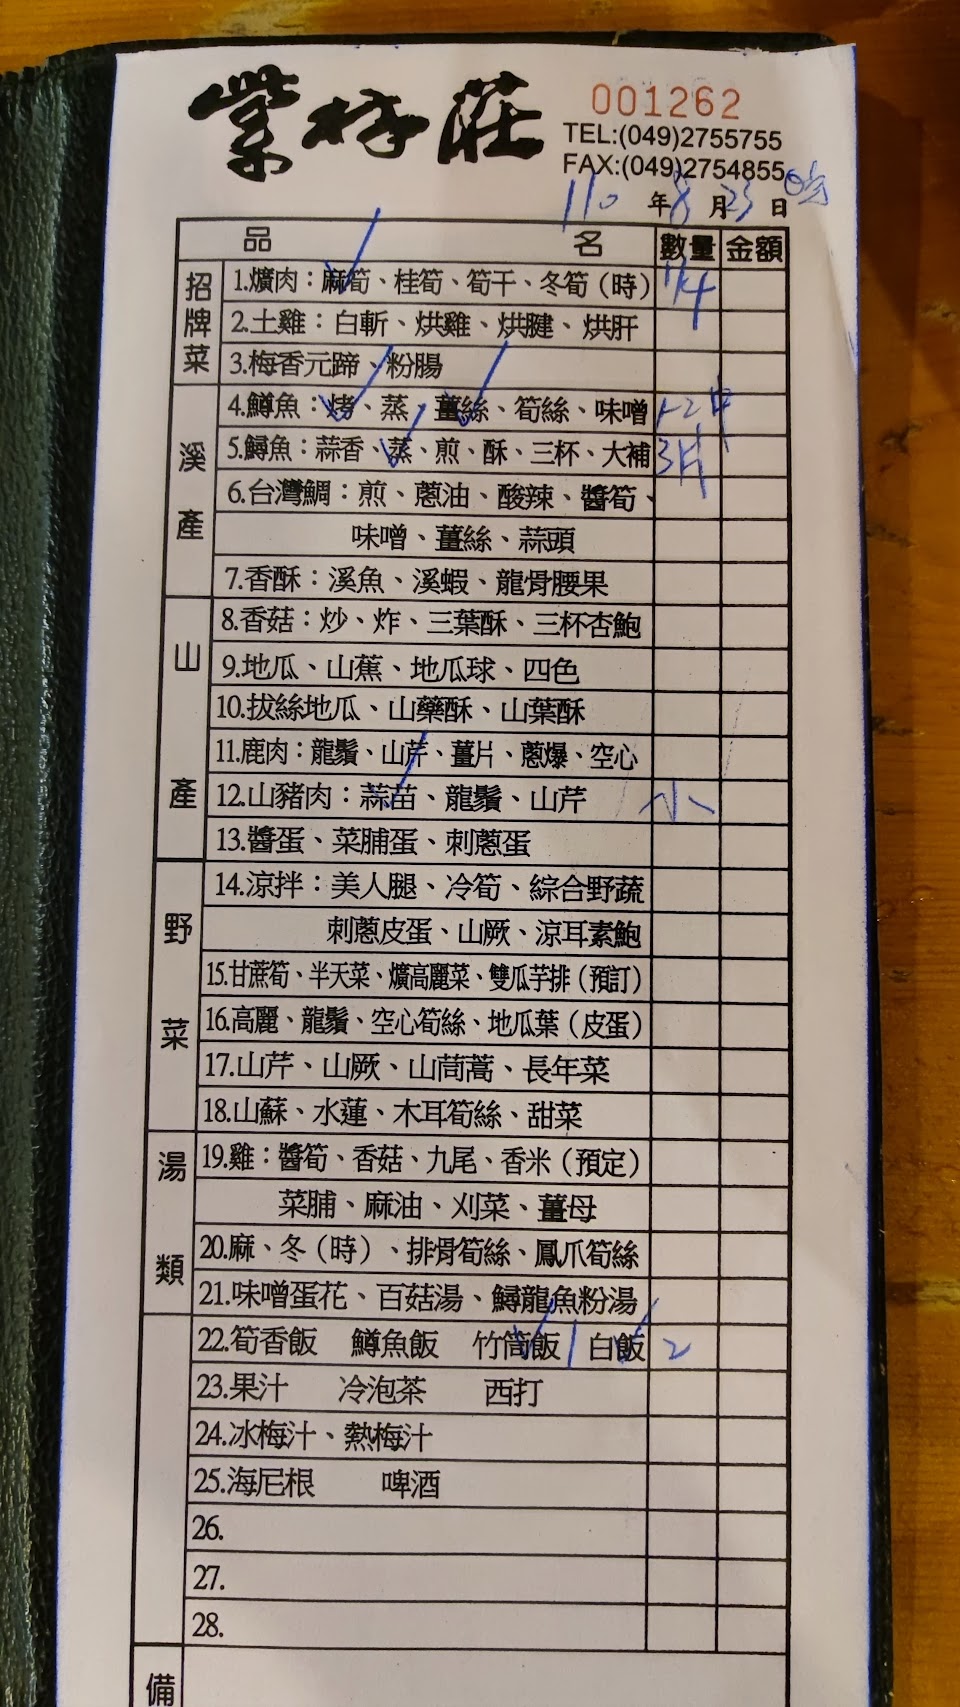 紫林莊
001262
TEL:(049)2755755
FAX:(049)2754855
110 年 8 月 23 日
品 名 數量 金額
招牌菜
1.爌肉：麻筍、桂筍、筍干、冬筍（時） 1/4
2.土雞：白斬、烘雞、烘腱、烘肝
3.梅香元蹄、粉腸
溪產
4.鱒魚：烤、蒸、薑絲、筍絲、味噌 1-2中
5.鱘魚：蒜香、蒸、煎、酥、三杯、大補 3片
6.台灣鯛：煎、蔥油、酸辣、醬筍、
味噌、薑絲、蒜頭
7.香酥：溪魚、溪蝦、龍骨腰果
山產
8.香菇：炒、炸、三葉酥、三杯杏鮑
9.地瓜、山蕉、地瓜球、四色
10.拔絲地瓜、山藥酥、山葉酥
11.鹿肉：龍鬚、山芹、薑片、蔥爆、空心
12.山豬肉：蒜苗、龍鬚、山芹 小
13.醬蛋、菜脯蛋、刺蔥蛋
野菜
14.涼拌：美人腿、冷筍、綜合野蔬
刺蔥皮蛋、山厥、涼耳素鮑
15.甘蔗筍、半天菜、爌高麗菜、雙瓜芋排（預訂）
16.高麗、龍鬚、空心筍絲、地瓜葉（皮蛋）
17.山芹、山厥、山茼蒿、長年菜
18.山蘇、水蓮、木耳筍絲、甜菜
湯類
19.雞：醬筍、香菇、九尾、香米（預定）
菜脯、麻油、刈菜、薑母
20.麻、冬（時）、排骨筍絲、鳳爪筍絲
21.味噌蛋花、百菇湯、鱘龍魚粉湯
22.筍香飯 鱒魚飯 竹筒飯 1 白飯 2
23.果汁 冷泡茶 西打
24.冰梅汁、熱梅汁
25.海尼根 啤酒
26.
27.
28.
備